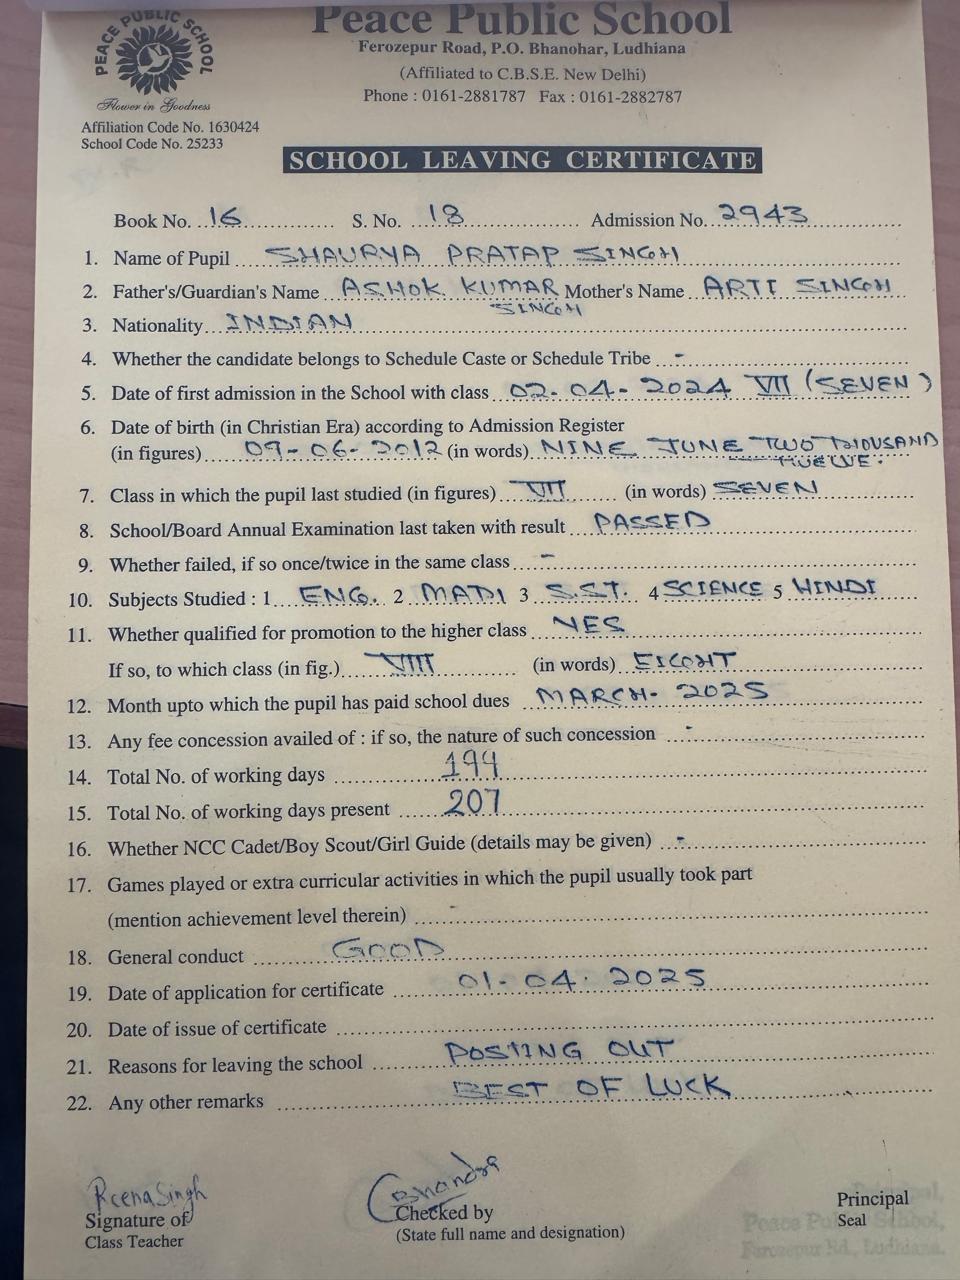 PEACE PUBLIC SCHOOL
Flower in Goodness
Peace Public School
Ferozepur Road, P.O. Bhanohar, Ludhiana
(Affiliated to C.B.S.E. New Delhi)
Phone : 0161-2881787 Fax : 0161-2882787
Affiliation Code No. 1630424
School Code No. 25233
SCHOOL LEAVING CERTIFICATE
Book No. 16 S. No. 18 Admission No. 2943
1. Name of Pupil SHAURYA PRATAP SINGH
2. Father's/Guardian's Name ASHOK KUMAR SINGH Mother's Name ARTI SINGH
3. Nationality INDIAN
4. Whether the candidate belongs to Schedule Caste or Schedule Tribe -
5. Date of first admission in the School with class 02-04-2024 VII (SEVEN)
6. Date of birth (in Christian Era) according to Admission Register
(in figures) 09-06-2012 (in words) NINE JUNE TWO THOUSAND
7. Class in which the pupil last studied (in figures) VII (in words) SEVEN
8. School/Board Annual Examination last taken with result PASSED
9. Whether failed, if so once/twice in the same class -
10. Subjects Studied : 1 ENG. 2 MATH 3 S.ST. 4 SCIENCE 5 HINDI
11. Whether qualified for promotion to the higher class YES
If so, to which class (in fig.) VIII (in words) EIGHT
12. Month upto which the pupil has paid school dues MARCH-2025
13. Any fee concession availed of : if so, the nature of such concession -
14. Total No. of working days 194
15. Total No. of working days present 207
16. Whether NCC Cadet/Boy Scout/Girl Guide (details may be given) -
17. Games played or extra curricular activities in which the pupil usually took part
(mention achievement level therein) -
18. General conduct GOOD
19. Date of application for certificate 01-04-2025
20. Date of issue of certificate
21. Reasons for leaving the school POSTING OUT
22. Any other remarks BEST OF LUCK
Reena Singh
Signature of
Class Teacher
Checked by
(State full name and designation)
Principal
Seal
Principal,
Peace Public School,
Ferozepur Rd., Ludhiana.